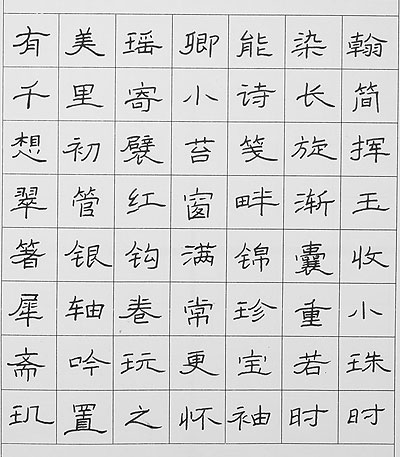 有美瑶卿能染翰
千里寄小诗长简
想初襞苔笺旋挥
翠管红窗畔渐玉
箸银钩满锦囊收
犀轴卷常珍重小
斋吟玩更宝若珠
玑置之怀袖时时